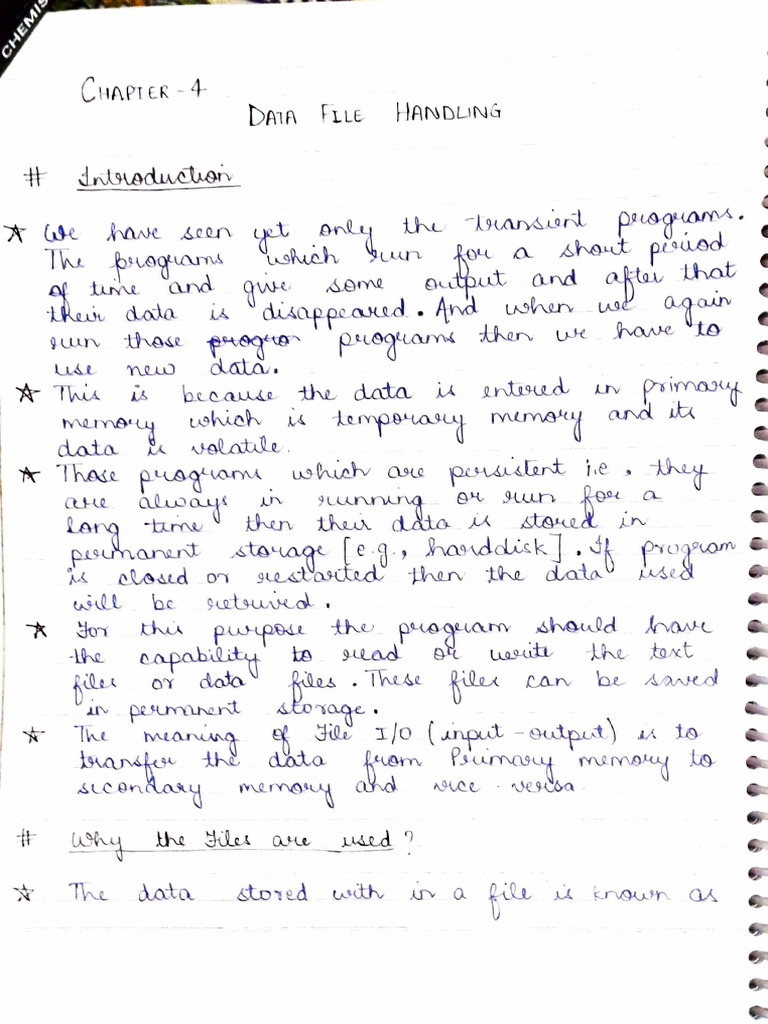 CHEMIS
CHAPTER - 4
DATA FILE HANDLING
# Introduction
☆ We have seen yet only the transient programs.
The programs which run for a short period
of time and give some output and after that
their data is disappeared. And when we again
run those progra programs then we have to
use new data.
☆ This is because the data is entered in primary
memory which is temporary memory and its
data is volatile.
☆ Those programs which are persistent i.e. they
are always in running or run for a
long time then their data is stored in
permanent storage [e.g., harddisk]. If program
is closed or restarted then the data used
will be retrived.
☆ For this purpose the program should have
the capability to read or write the text
files or data files. These files can be saved
in permanent storage.
☆ The meaning of File I/O (input-output) is to
transfer the data from Primary memory to
secondary memory and vice-versa
# Why the Files are used?
☆ The data stored with in a file is known as